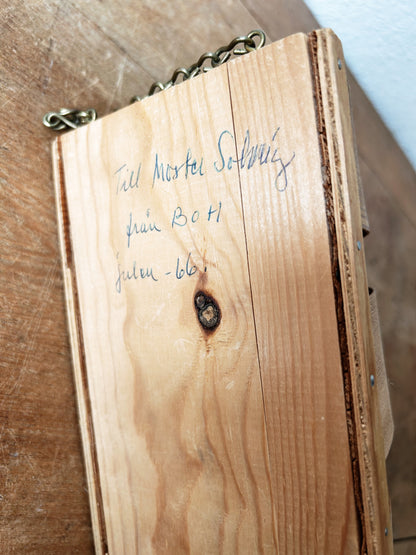 Till Moster Solveig
från BoH
julen -66.